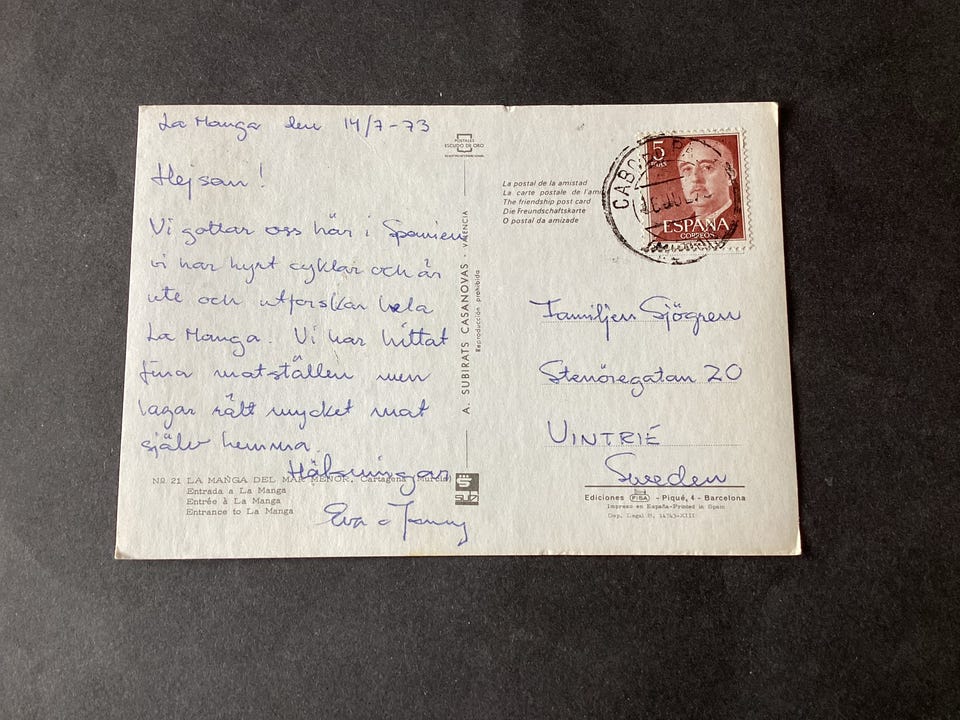 La Manga den 14/7-73
Hejsan!
Vi gottar oss här i Spanien
vi har hyrt cyklar och är
ute och utforskar hela
La Manga. Vi har hittat
fina matställen men
lagar rätt mycket mat
själv hemma.
Hälsningar
Eva o
Nº 21 LA MANGA DEL MAR MENOR. Cartagena (Murcia)
Entrada a La Manga
Entrée à La Manga
Entrance to La Manga
POSTALES
ESCUDO DE ORO
A. SUBIRATS CASANOVAS - VALENCIA
Reproducción prohibida
La postal de la amistad
La carte postale de l'ami
The friendship post card
Die Freundschaftskarte
O postal da amizade
5
PTAS
ESPAÑA
CORREOS
Familjen Sjögren
Stenöregatan 20
VINTRIE
Sweden
Ediciones FISA - Piqué, 4 - Barcelona
Impreso en España-Printed in Spain
Dep. Legal B. 14343-XIII